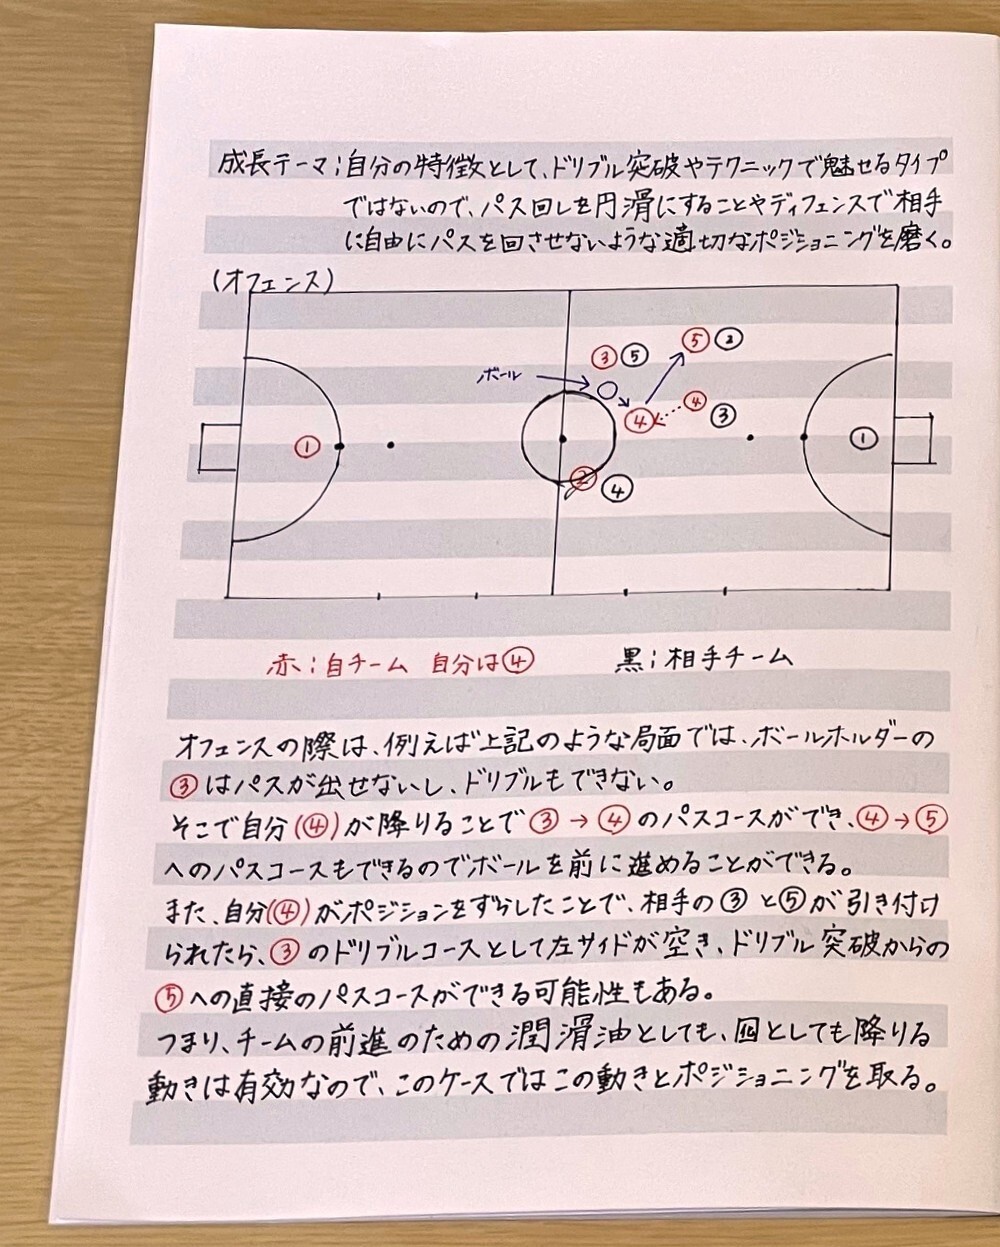 成長テーマ;自分の特徴として、ドリブル突破やテクニックで魅せるタイプ
ではないので、パス回しを円滑にすることやディフェンスで相手
に自由にパスを回させないような適切なポジショニングを磨く。
(オフェンス)
③ ⑤ ⑤ ②
ボール
④ ④ ③
① ① 
② ④
赤;自チーム 自分は④ 黒;相手チーム
オフェンスの際は、例えば上記のような局面では、ボールホルダーの
③はパスが出せないし、ドリブルもできない。
そこで自分(④)が降りることで③→④のパスコースができ、④→⑤
へのパスコースもできるのでボールを前に進めることができる。
また、自分(④)がポジションをずらしたことで、相手の③と⑤が引き付け
られたら、③のドリブルコースとして左サイドが空き、ドリブル突破からの
⑤への直接のパスコースができる可能性もある。
つまり、チームの前進のための潤滑油としても、囮としても降りる
動きは有効なので、このケースではこの動きとポジショニングを取る。